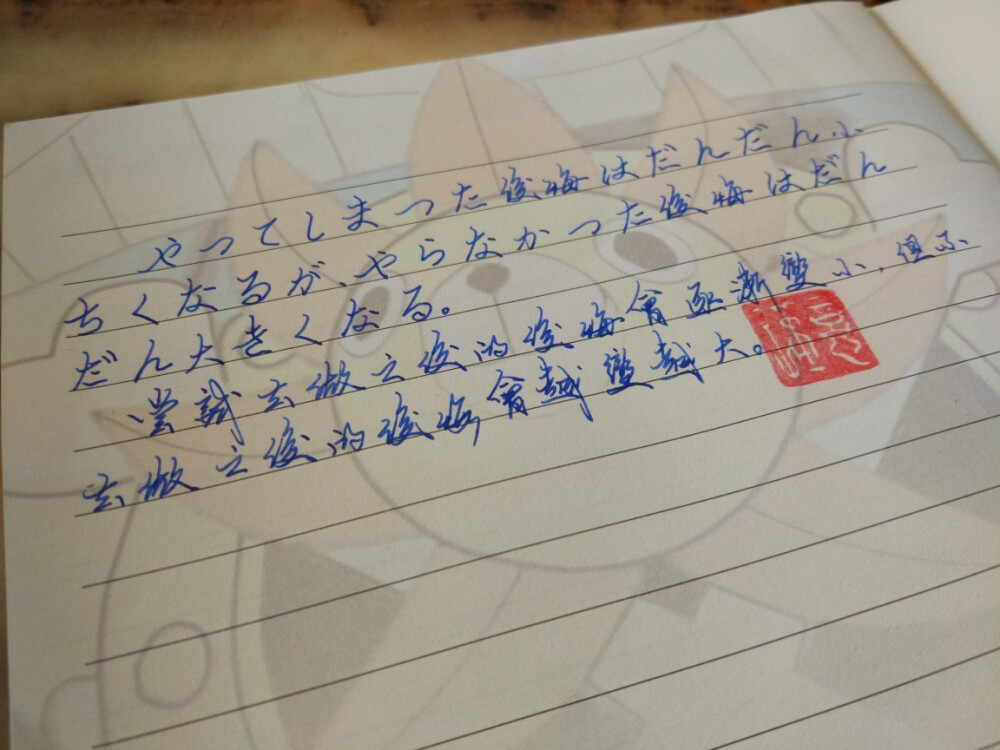 やってしまった後悔はだんだん小
ちくなるが、やらなかった後悔はだん
だん大きくなる。
尝試去做之後的後悔會逐漸變小，但不
去做之後的後悔會越變越大。